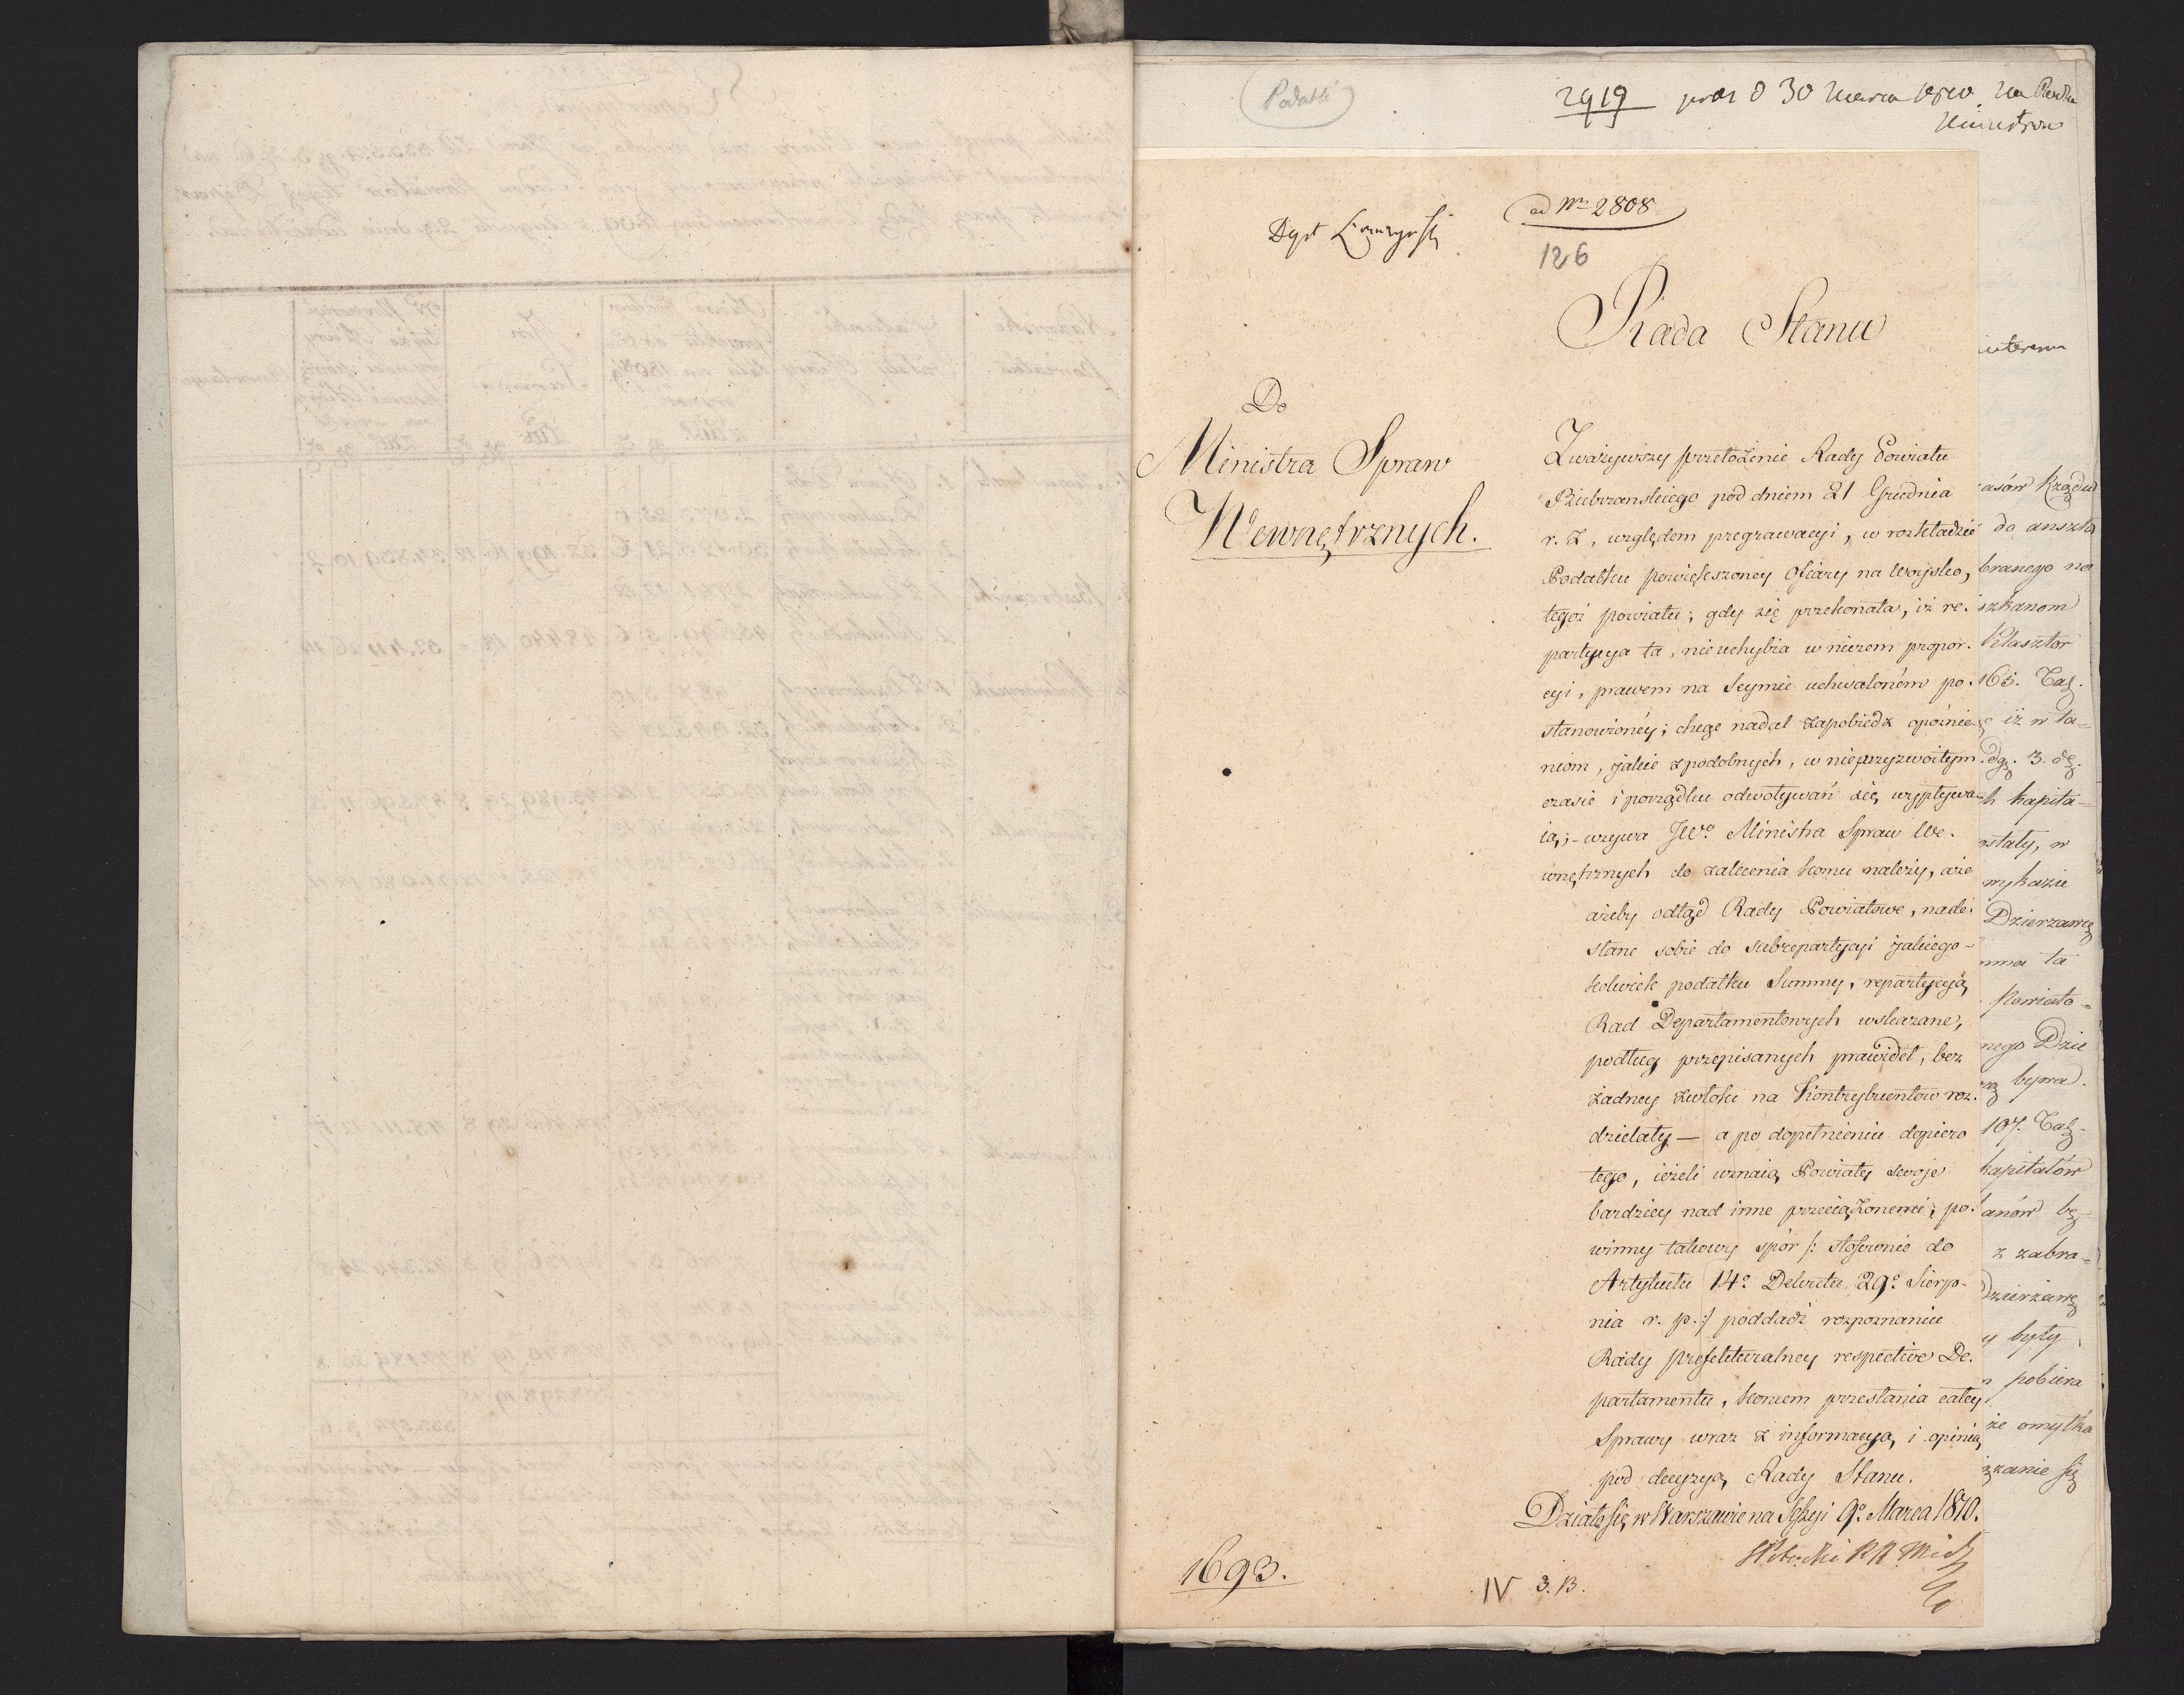 Podatki
2919
30 Marca
ad Nro 2808
126
Rada Stanu
Do
Ministra Spraw
Wewnętrznych.
Zważywszy przełożenie Rady Powiatu
Biebrzanskiego pod dniem 21 Grudnia
r. z, względem pregrawacyi, w rozkładzie
Podatku powiększoney Ofiary na Woysko,
tegoż powiatu; gdy się przekonała, iż re-
partycya ta, nieuchybia w niczem propor-
cyi, prawem na Seymie uchwalonóm po-
stanowionéy; chcąc nadal zapobiedz opóźnie-
niom, jakie z podobnych, w nieprzyzwoitym
czasie i porządku odwoływań się, wypływa-
ią; - wzywa JWo Ministra Spraw We-
wnętrznych do zalecenia komu należy, aże
ażeby odtąd Rady Powiatowe, nade-
słane sobie do subrepartycyi jakiego-
kolwiek podatku Summy, repartycyą
Rad Departamentowych wskazane,
podług przepisanych prawideł, bez
żadney zwłoki na Kontrybuentow roz-
dzielały — a po dopełnieniu dopiero
tego, ieżeli uznaią Powiaty swoje
bardziey nad inne przeciążonemi, po-
winny takowy spór /: stosownie do
Artykułu 14o Dekretu 29o Sierp-
nia r. p. :/ poddadź rozpoznaniu
Rady prefekturalney respective De-
partamentu, koncem przesłania całey
Sprawy wraz z informacyą i opinią
pod decyzyą Rady Stanu.
Działo się w Warszawie na Sessyi 9o Marca 1810.
1693.
IV 3. B.
asów Rządu
branego na
szkanom
Klasztor
165. Tal.
iż w ta=
3.
h kapita=
wykazie
Dzierzawę
mma ta
Powiato=
nego Dzie
107. Tal.
kapitałów
z zabra=
Dzierżawę
y były
pobiera
że omyłka
zanie się